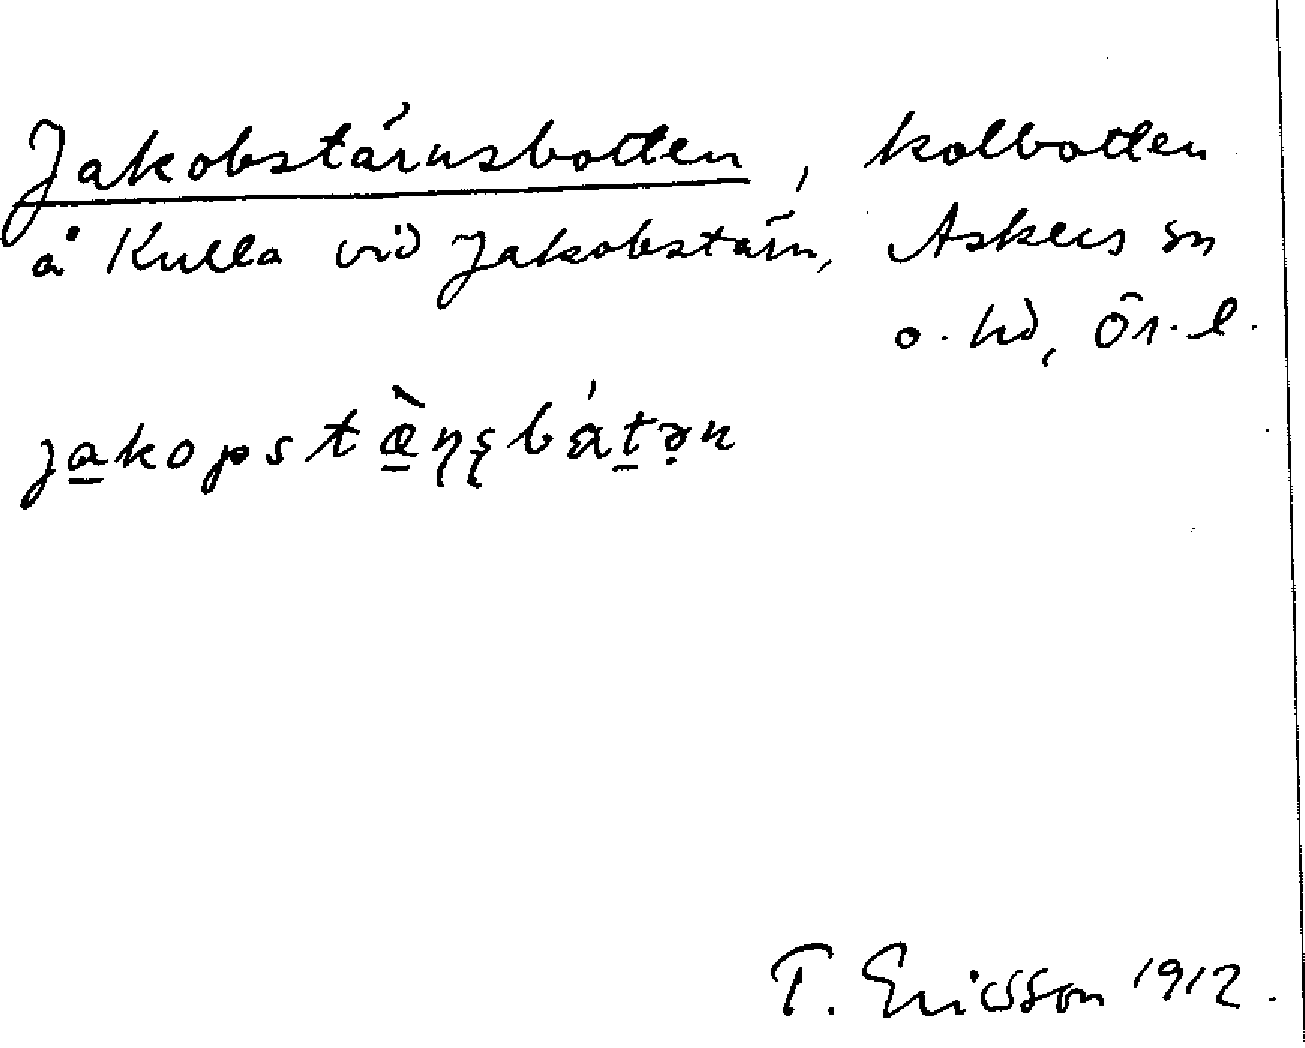 Jakobstärnsbotten, kolbotten
å Kulla vid Jakobstärn, Askers sn
o. hd, Ör. l.
T. Ericsson 1912.